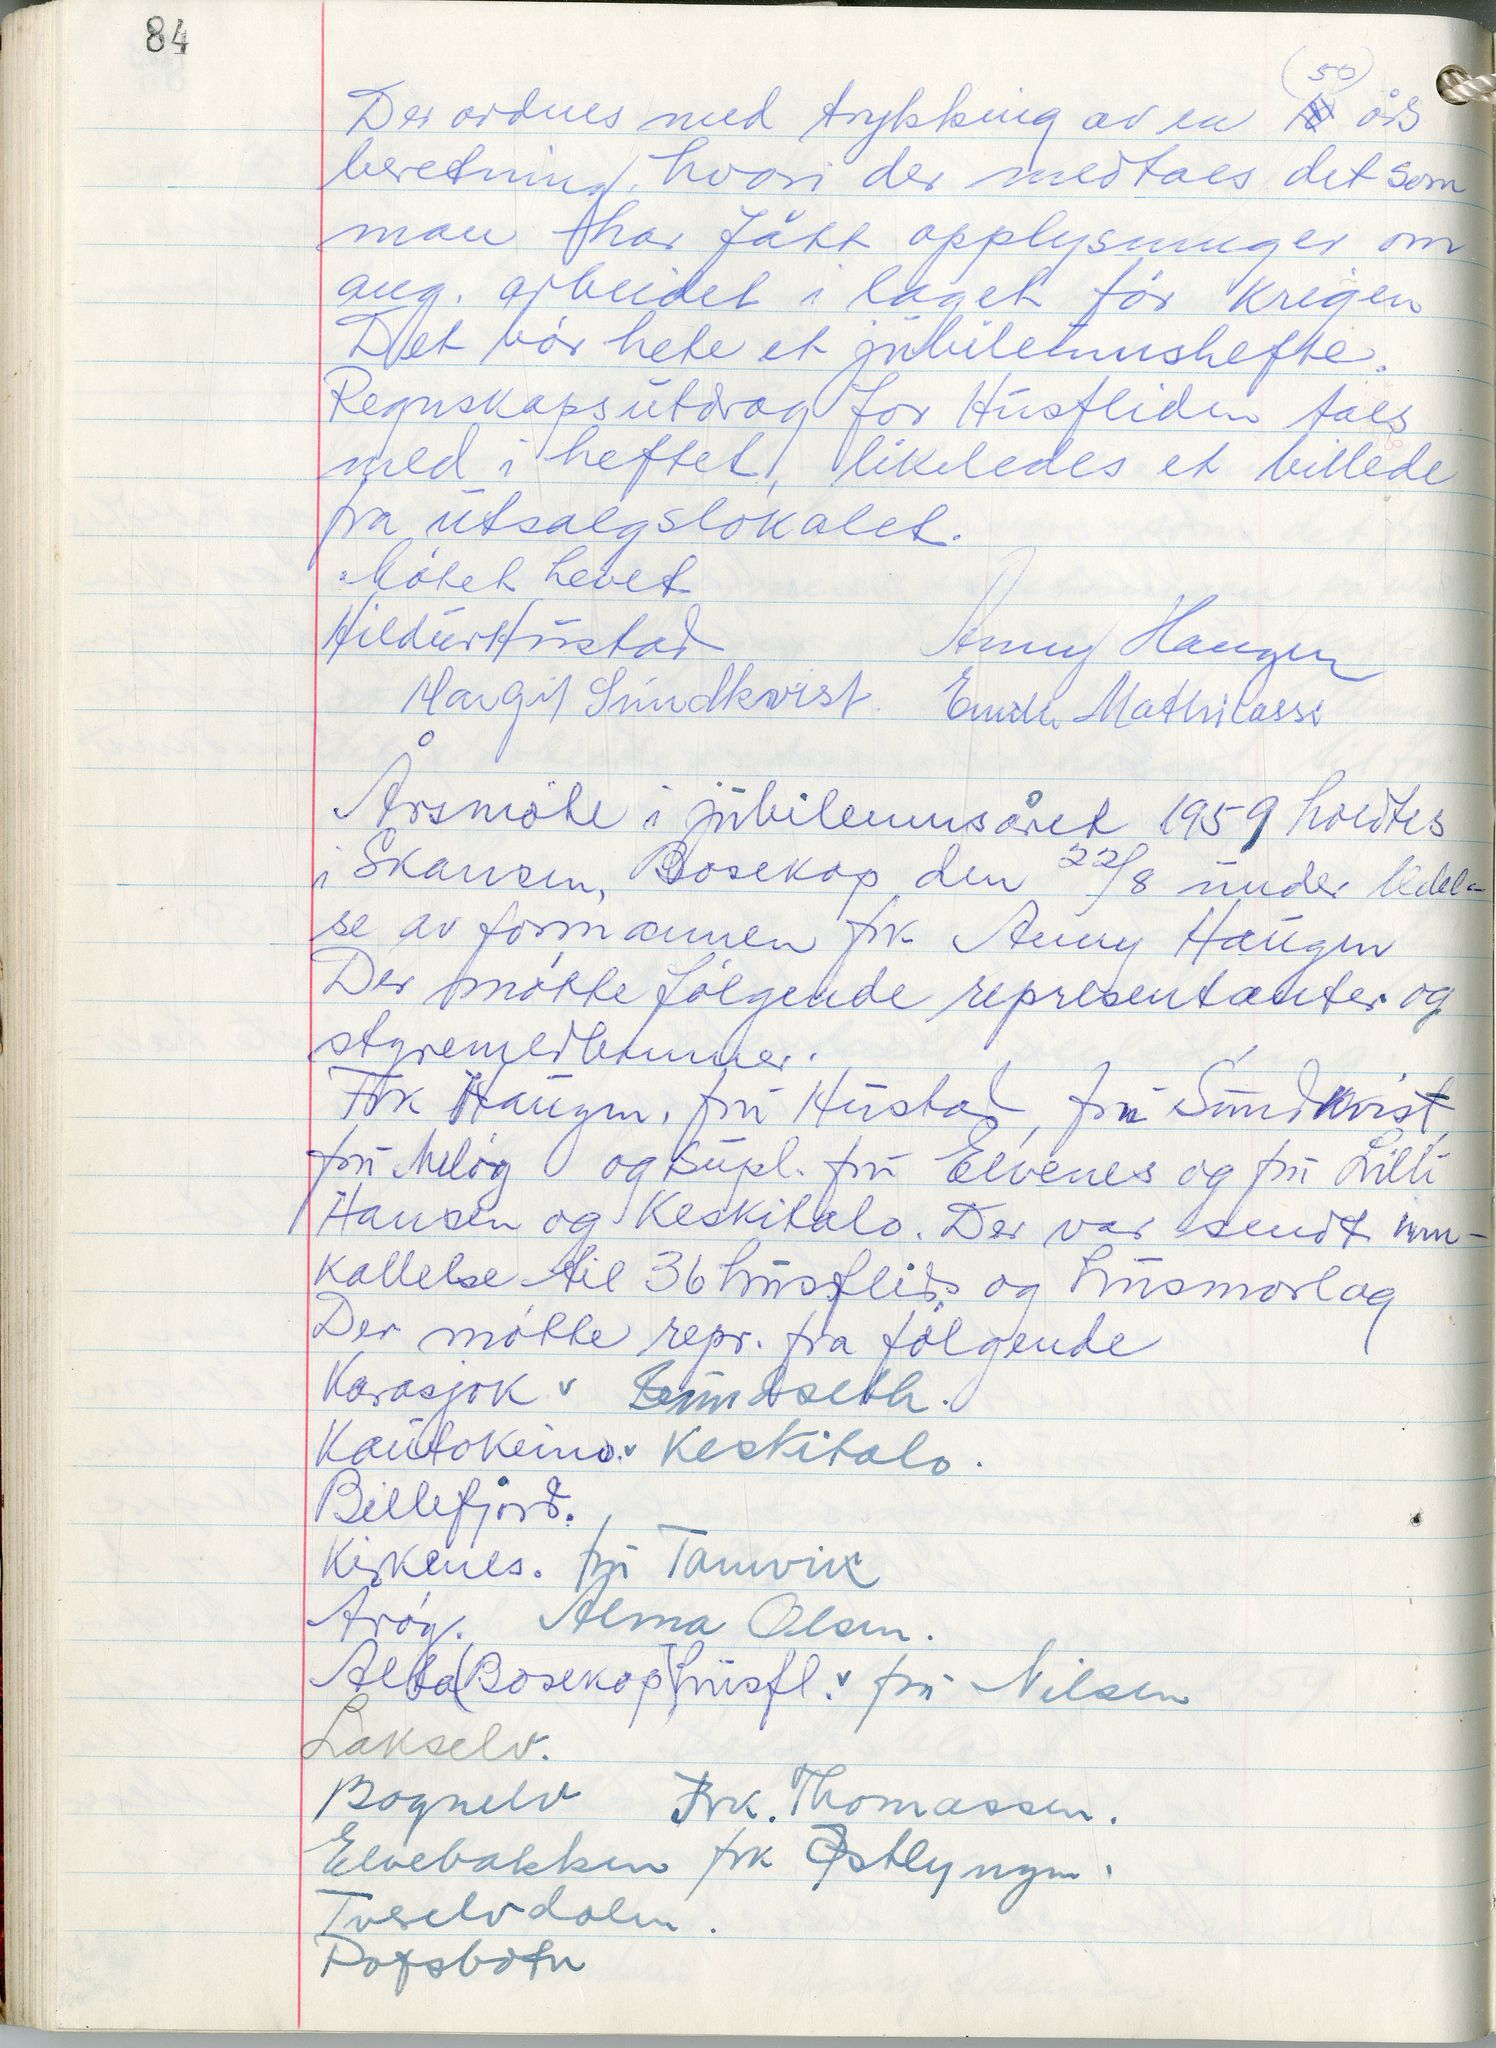 84
(50)
Der ordnes med trykking av en års
beretning, hvori der medtaes det som
man har fått opplysninger om
ang. arbeidet i laget før krigen
Det bør hete et jubileumshefte.
Regnskapsutdrag for Husfliden taes
med i heftet, likeledes et billede
fra utsalgslokalet.
Møtet hevet
Hildur Hustad Anny Haugen
Margit Sundkvist. Mathilassi
Årsmøte i jubileumsåret 1959 holdtes
i Skansen, Bosekop den 22/8 under ledel-
se av formannen frk Anny Haugen
Der møtte følgende representanter og
styremedlemmer.
Frk Haugen, fru Hustad, fru Sundkvist,
fru Meløy og supl. fru Elvenes og fru Lilli
Hansen og Keskitalo. Der var sendt inn-
kallelse til 36 husflids og husmorlag
Der møtte repr. fra følgende
Karasjok v Lundseth.
Kautokeino. v Keskitalo.
Billefjord.
Kirkenes. fru Tamvik
Arøy. Alma Olsen.
Alta (Bosekop) husfl. v fru Nilsen
Lakselv.
Bognelv Frk. Thomassen.
Elvebakken frk Østlyngen.
Tverelvdalen.
Rafsbotn